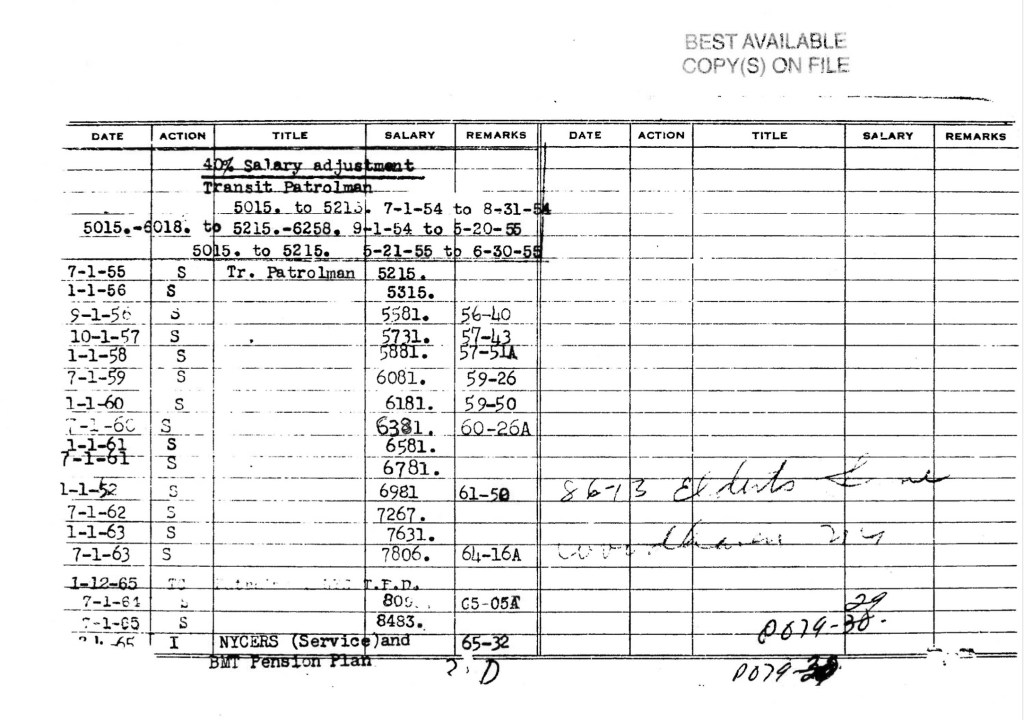 BEST AVAILABLE
COPY(S) ON FILE
DATE ACTION TITLE SALARY REMARKS DATE ACTION TITLE SALARY REMARKS
40% Salary adjustment
Transit Patrolman
5015. to 5215. 7-1-54 to 8-31-54
5015.-6018. to 5215.-6258. 9-1-54 to 5-20-55
5015. to 5215. 5-21-55 to 6-30-55
7-1-55 S Tr. Patrolman 5215.
1-1-56 S 5315.
9-1-56 S 5581. 56-40
10-1-57 S 5731. 57-43
1-1-58 S 5881. 57-51A
7-1-59 S 6081. 59-26
1-1-60 S 6181. 59-50
7-1-60 S 6381. 60-26A
1-1-61 S 6581.
7-1-61 S 6781.
1-1-52 S 6981 61-50 86-13 Elderts Lane
7-1-62 S 7267.
1-1-63 S 7631.
7-1-63 S 7806. 64-16A Woodhaven NY
1-12-65 T.P.D.
7-1-64 S
7-1-65 S 8483. 29
65 I NYCERS (Service)and 65-32 P079-38.
BMT Pension Plan D P079